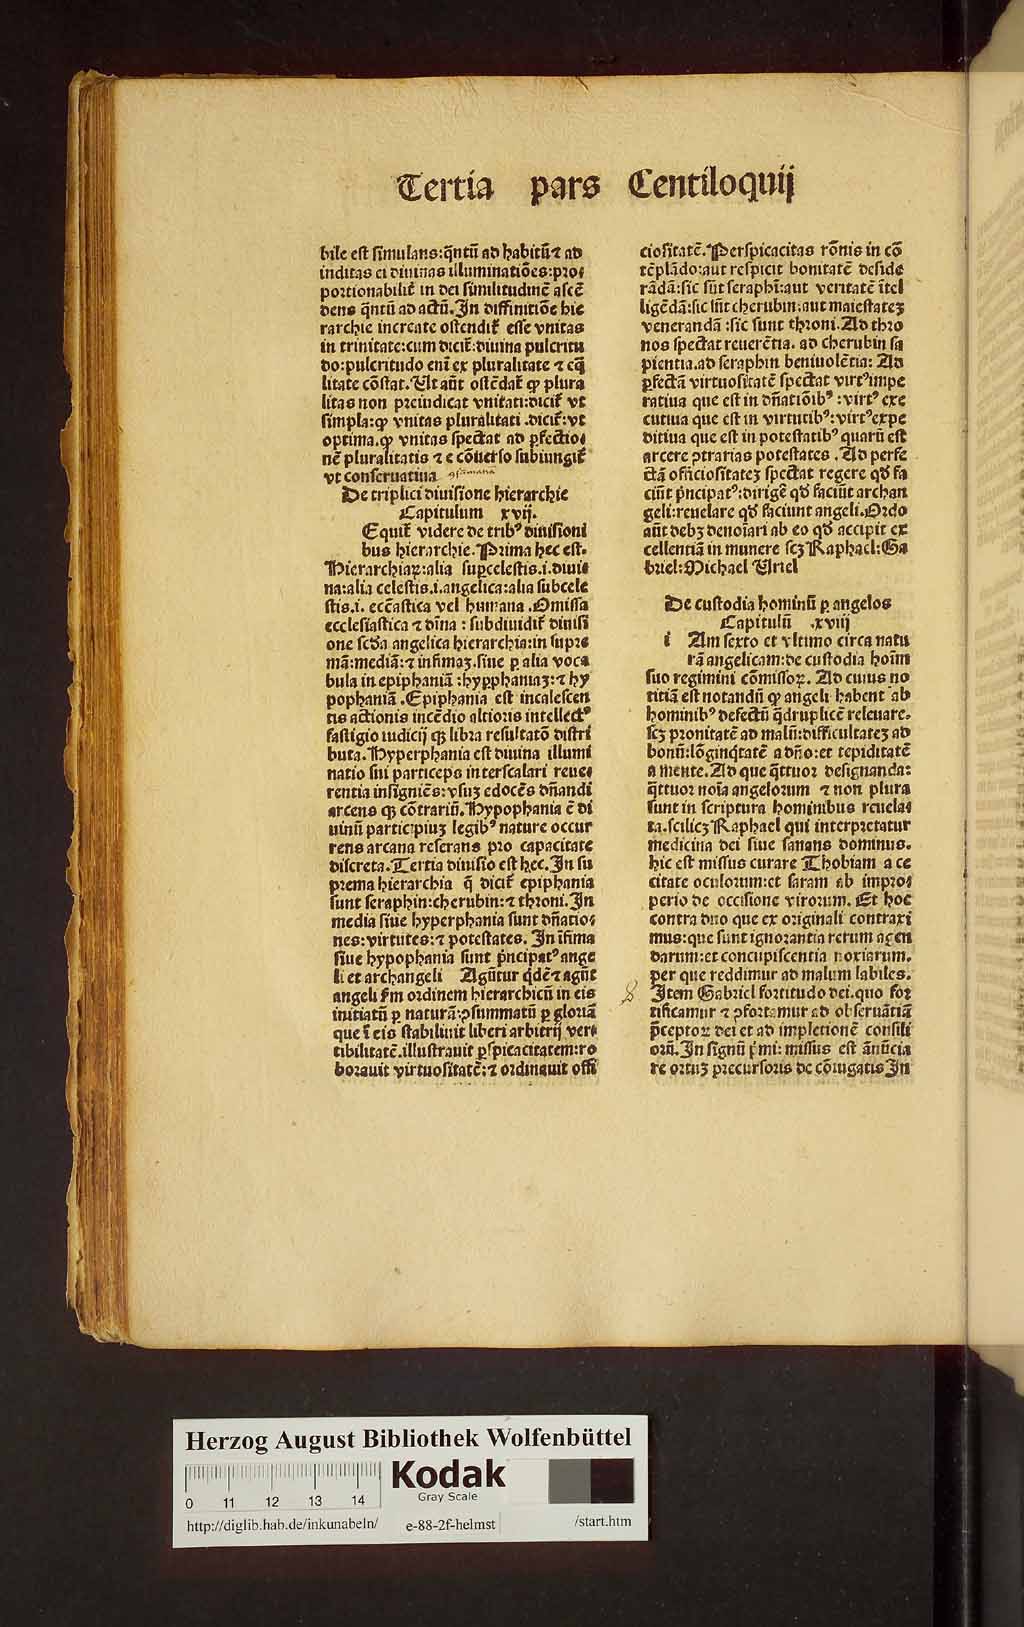 Tertia pars Centiloquij
bile est simulans:q̃ntũ ad habitũ ⁊ ad
inditas ei diuinas illuminatiões:pro⸗
portionabilit̃ in dei similitudinẽ ascẽ
dens q̃ntũ ad actũ. In diffinitiõe hie
rarchie increate ostendit̃ esse vnitas
in trinitate:cum dicit̃:diuina pulcritu
do:pulcritudo eni ̃ex pluralitate ⁊ eq̃
litate cõstat. Ut aũt ostẽdat̃ ꝙ plura
litas non preiudicat vnitati:dicit̃ vt
simpla:ꝙ vnitas pluralitati .dicit̃:vt
optima.ꝙ vnitas spectat ad ꝑfectio⸗
nẽ pluralitatis ⁊ e cõuerso subiungit̃
vt conseruatiua
De triplici diuisione hierarchie
Capitulum xvij.
Equit̃ videre de tribꝰ diuisioni
bus hierarchie. Prima hec est.
Hierarchiaꝝ:alia suꝑcelestis.i.diui⸗
na:alia celestis.i.angelica:alia subcele
stis.i. ecc̃astica vel humana .Omissa
ecclesiastica ⁊ diĩna : subdiuidit̃ diuisi
one scd̃a angelica hierarchia:in supre
mã:mediã:⁊ infimaʒ.siue ꝑ alia voca
bula in epiphaniã :hyꝑphaniaʒ:⁊ hy
pophaniã .Epiphania est incalescen
tis actionis incẽdio altioris intellectꝰ
fastigio iudicij qʒ libra resultatõ distri
buta. Hyperphania est diuina illumi
natio sui particeps interscalari reue⸗
rentia insigniẽs: vsuʒ edocẽs dñandi
arcens qʒ cõtrariũ. Hypophania ẽ di
uinũ participiuʒ legibꝰ nature occur
rens arcana reserans pro capacitate
discreta. Tertia diuisio est hec. In su
prema hierarchia q̃ dicit̃ epiphania
sunt seraphin:cherubin:⁊ throni. In
media siue hyperphania sunt dñatio⸗
nes:virtutes:⁊ potestates. In ĩfima
siue hypophania sunt pͥncipatꝰ ange
li et archangeli Agũtur qͥdẽ ⁊ agũt
angeli ẜm ordinem hierarchicũ in eis
initiatũ ꝑ naturã:ꝯsummatũ ꝑ gloriã
que ĩ eis stabiliuit liberi arbitrij ver⸗
tibilitatẽ.illustrauit ꝑspicacitatem:ro
borauit virtuositatẽ:⁊ ordinauit offi
ciositatẽ. Perspicacitas rõnis in cõ
tẽplãdo:aut respicit bonitatẽ deside
rãdã:sic sũt seraphi:̃aut veritatẽ ĩtel
ligẽdã:sic sũt cherubin:aut maiestateʒ
venerandã :sic sunt throni. Ad thro
nos spectat reuerẽtia. ad cherubin sa
pientia.ad seraphin beniuolẽtia: Ad
ꝑfectã virtuositatẽ spectat virtꝰimpe
ratiua que est in dñatiõibꝰ :virtꝰ exe
cutiua que est in virtutibꝰ:virtꝰexpe
ditiua que est in potestatibꝰ quarũ est
arcere ꝯtrarias potestates . Ad perfe
ctã officiositateʒ spectat regere qd̃ fa
ciũt pͥncipatꝰ:dirigẽ qd̃ faciũt archan
geli:reuelare qd̃ faciunt angeli.Ordo
aũt debʒ denoĩari ab eo qd̃ accipit ex
cellentiã in munere scʒ Raphael:Ga
briel:Michael Uriel
De custodia hominũ ꝑ angelos
Capitulũ .xviij
i Am sexto et vltimo circa natu
rã angelicam:de custodia hoĩm
suo regimini cõmissoꝝ. Ad cuius no
titiã est notandũ ꝙ angeli habent ab
hominibꝰ defectũ q̃druplicẽ releuare.
scʒ pronitatẽ ad malũ:difficultateʒ ad
bonũ:lõginqͥtatẽ a dño:et tepiditatẽ
a mente. Ad que q̃ttuor designanda:
q̃ttuor noĩa angelorum ⁊ non plura
sunt in scriptura hominibus reuela⸗
ta.scilicʒ Raphael qui interpretatur
medicina dei siue sanans dominus.
hic est missus curare Thobiam a ce
citate oculorum:et saram ab impro⸗
perio de occisione virorum. Et hoc
contra duo que ex originali contraxi
mus:que sunt ignorantia rerum agen
darum:et concupiscentia noxiarum.
per que reddimur ad malum labiles.
Item Gabriel fortitudo dei.quo for
tificamur ⁊ ꝯfortamur ad obseruãtiã
p̃ceptoꝝ dei et ad impletionẽ consili
orũ. In signũ pͥmi: missus est ãnũcia
re ortuʒ precursoris de cõiugatis In
Herzog August Bibliothek Wolfenbüttel
0 11 12 13 14
Kodak
Gray Scale
http://diglib.hab.de/inkunabeln/ e-88-2f-helmst /start.htm